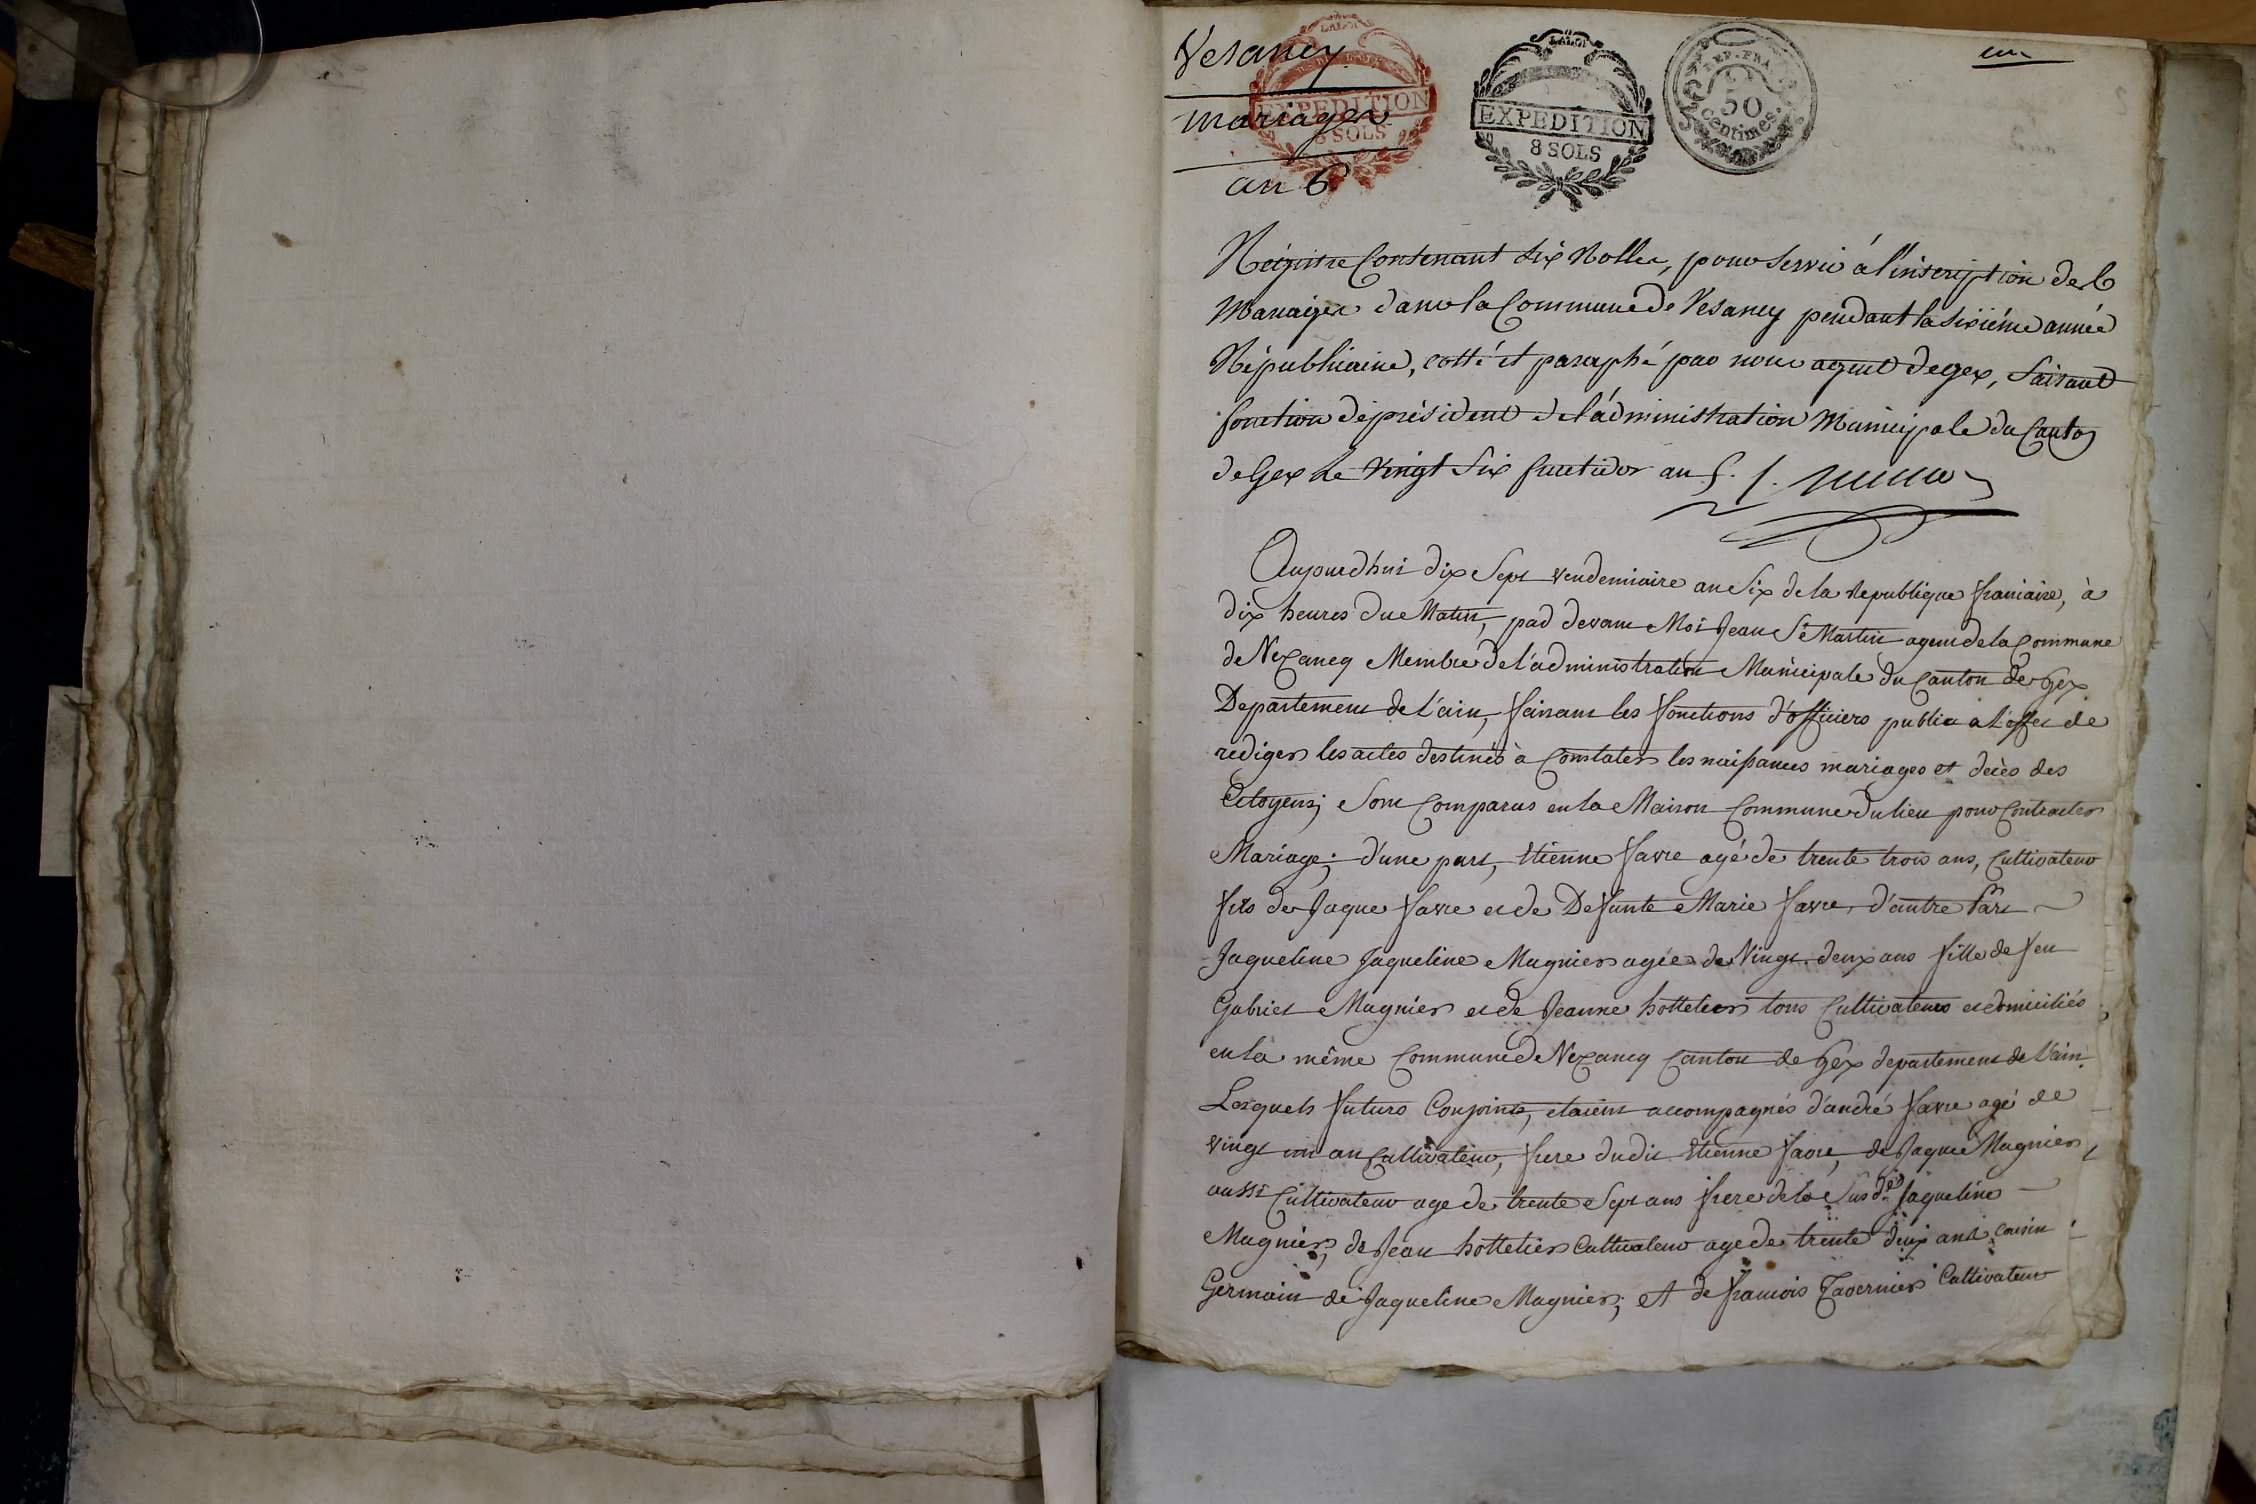 Vesancy
mariages
an 6
LA LOI
EXPEDITION
8 SOLS
LA LOI
EXPEDITION
8 SOLS
REP. FRA.
50
centimes.
un
Régistre Contenant six Rolles, pour servir à l'inscription des
Mariages dans la Commune de Vesancy pendant la sixiéme année
Républicaine, cotté et paraphé par nous agent de gex, faisant
fonction de président de l'administration Municipale du Canton
de Gex le vingt six fructidor an 5.
Aujourd'hui dix sept vendemiaire an six de la Republique francaise, à
dix heures du Matin, par devant Moi Jean agent de la Commune
de Vezancy Membre de l'administration Municipale du Canton de Gex
Departement de L'ain, faisant les fonctions d'officiers public a l'effet de
rediger les actes destinés à Constater les naissances mariages et deces des
Citoyens; sont Comparus en la Maison Commune du lieu pour Contracter
Mariage; d'une part, Etienne favre agé de trente trois ans, Cultivateur
fils de Jaque favre et de Defunte Marie favre, d'autre Part
Jaqueline Jaqueline Magnier agée de Vingt deux ans fille de feu
Gabriel Magnier et de Jeanne hottelier tous Cultivateurs et domiciliés
en la même Commune de Vezancy Canton de Gex departement de L'ain.
Lesquels futurs Conjoints, etaient accompagnés d'andré favre agé de
vingt un an Cultivateur, frere dudit Etienne favre, de Jaque Magnier
aussi Cultivateur age de trente sept ans frere de la susd. Jaqueline
Magnier; de Jean hottelier Cultivateur age de trente deux ans cousin
Germain de Jaqueline Magnier; et de francois Tavernier Cultivateur